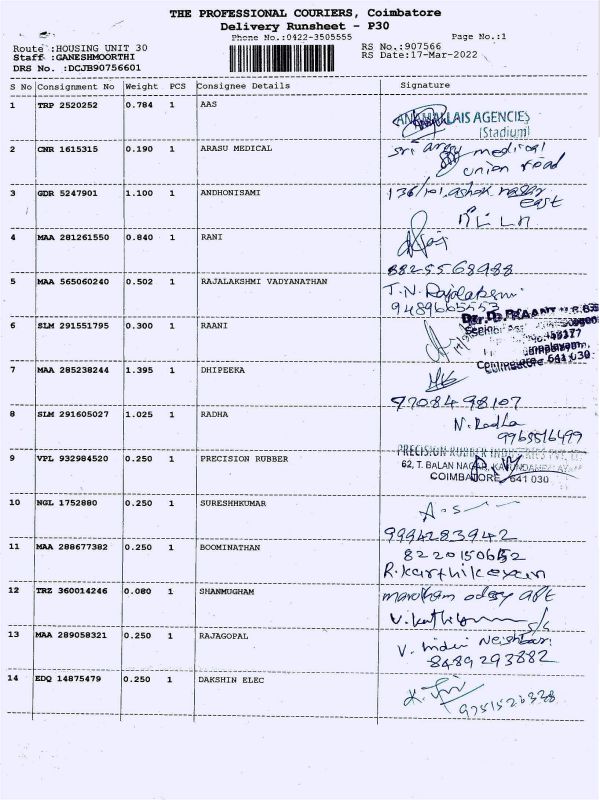 THE PROFESSIONAL COURIERS, Coimbatore
Delivery Runsheet - P30
Phone No.:0422-3505555
Page No.:1
Route :HOUSING UNIT 30
RS No.:907566
Staff :GANESHMOORTHI
RS Date:17-Mar-2022
DRS No. :DCJB90756601
S No Consignment No Weight PCS Consignee Details Signature
1 TRP 2520252 0.784 1 AAS
ANAMALLAIS AGENCIES
(Stadium)
2 CNR 1615315 0.190 1 ARASU MEDICAL
Sri arasu medical
union road
3 GDR 5247901 1.100 1 ANDHONISAMI
136/101, ashok nagar
east
4 MAA 281261550 0.840 1 RANI
8825568988
5 MAA 565060240 0.502 1 RAJALAKSHMI VADYANATHAN
T.N. Rajalakshmi
9489665553
6 SLM 291551795 0.300 1 RAANI
641 030
7 MAA 285238244 1.395 1 DHIPEEKA
9708498107
8 SLM 291605027 1.025 1 RADHA
N. Radha
9965516499
9 VPL 932984520 0.250 1 PRECISION RUBBER
PRECISION RUBBER INDUSTRIES PVT. LTD.
62, T. BALAN NAGAR,
COIMBATORE, 641 030
10 NGL 1752880 0.250 1 SURESHHKUMAR
9994283942
11 MAA 288677382 0.250 1 BOOMINATHAN
8220150652
R. Karthikeyan
12 TRZ 360014246 0.080 1 SHANMUGHAM
13 MAA 289058321 0.250 1 RAJAGOPAL
8489293882
14 EDQ 14875479 0.250 1 DAKSHIN ELEC
9751526328